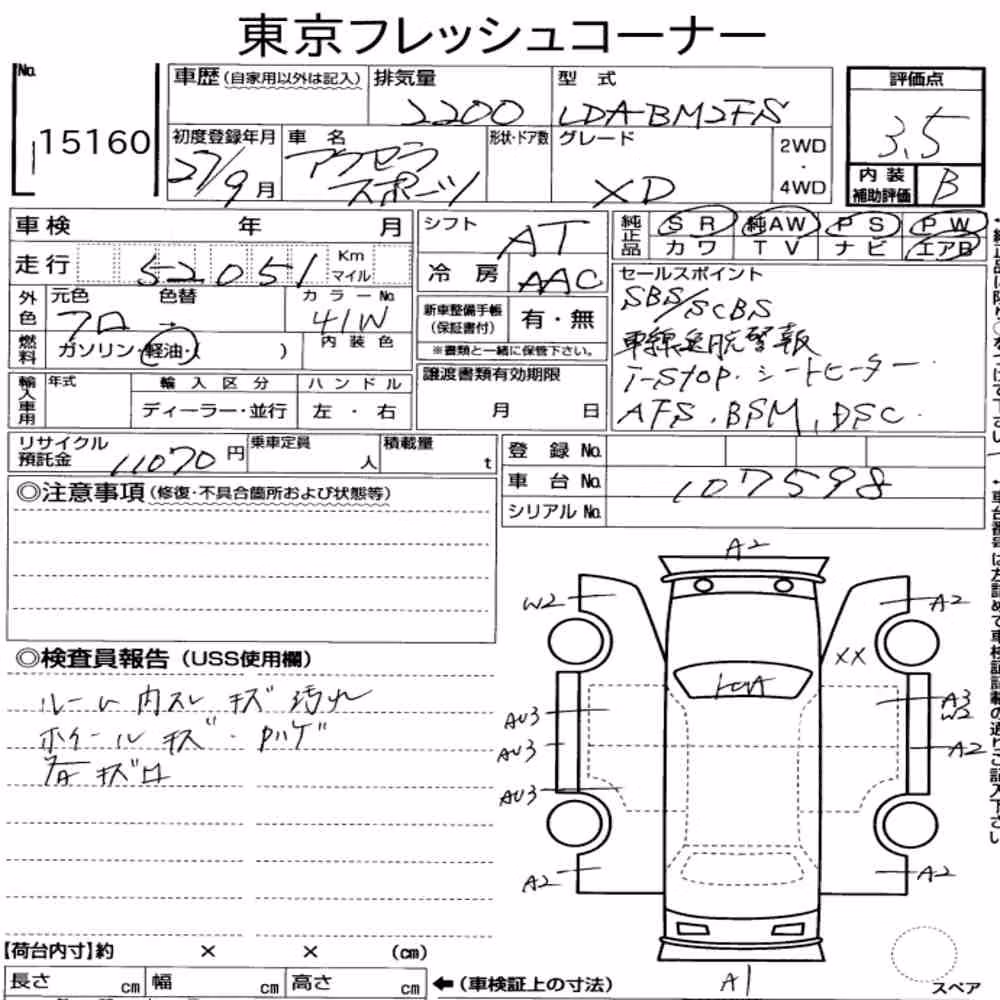 東京フレッシュコーナー
No.
15160
車歴(自家用以外は記入)
排気量
2200
型 式
LDA-BM2FS
評価点
3.5
初度登録年月
27/9月
車 名
アクセラ
スポーツ
形状・ドア数
グレード
XD
2WD
・
4WD
内 装
補助評価
B
車検 年 月
シフト
AT
純正品
SR 純AW PS PW
カワ TV ナビ エアB
走行
52051
Km
マイル
冷 房
AAC
セールスポイント
SBS/SCBS
車線逸脱警報
i-stop. シートヒーター
AFS. BSM, DSC.
外色
元色 色替
クロ →
カラーNo.
41W
新車整備手帳
(保証書付)
有・無
※書類と一緒に保管下さい。
燃料
ガソリン・軽油・( )
内 装 色
輸入車用
年式
輸 入 区 分
ハ ン ド ル
ディーラー・並行
左 ・ 右
譲渡書類有効期限
月 日
リサイクル
預託金
11070円
乗車定員
人
積載量
t
登 録 No.
車 台 No.
107598
シリアル No.
◎注意事項(修復・不具合箇所および状態等)
◎検査員報告(USS使用欄)
ルーム内スレ キズ 汚れ
ホイールキズ・ハゲ
キズ
A2
W2
A2
XX
AU3
A3
W2
AU3
A2
AU3
A2
A2
A1
スペア
【荷台内寸】約 × × (cm)
長さ cm 幅 cm 高さ cm
←(車検証上の寸法)